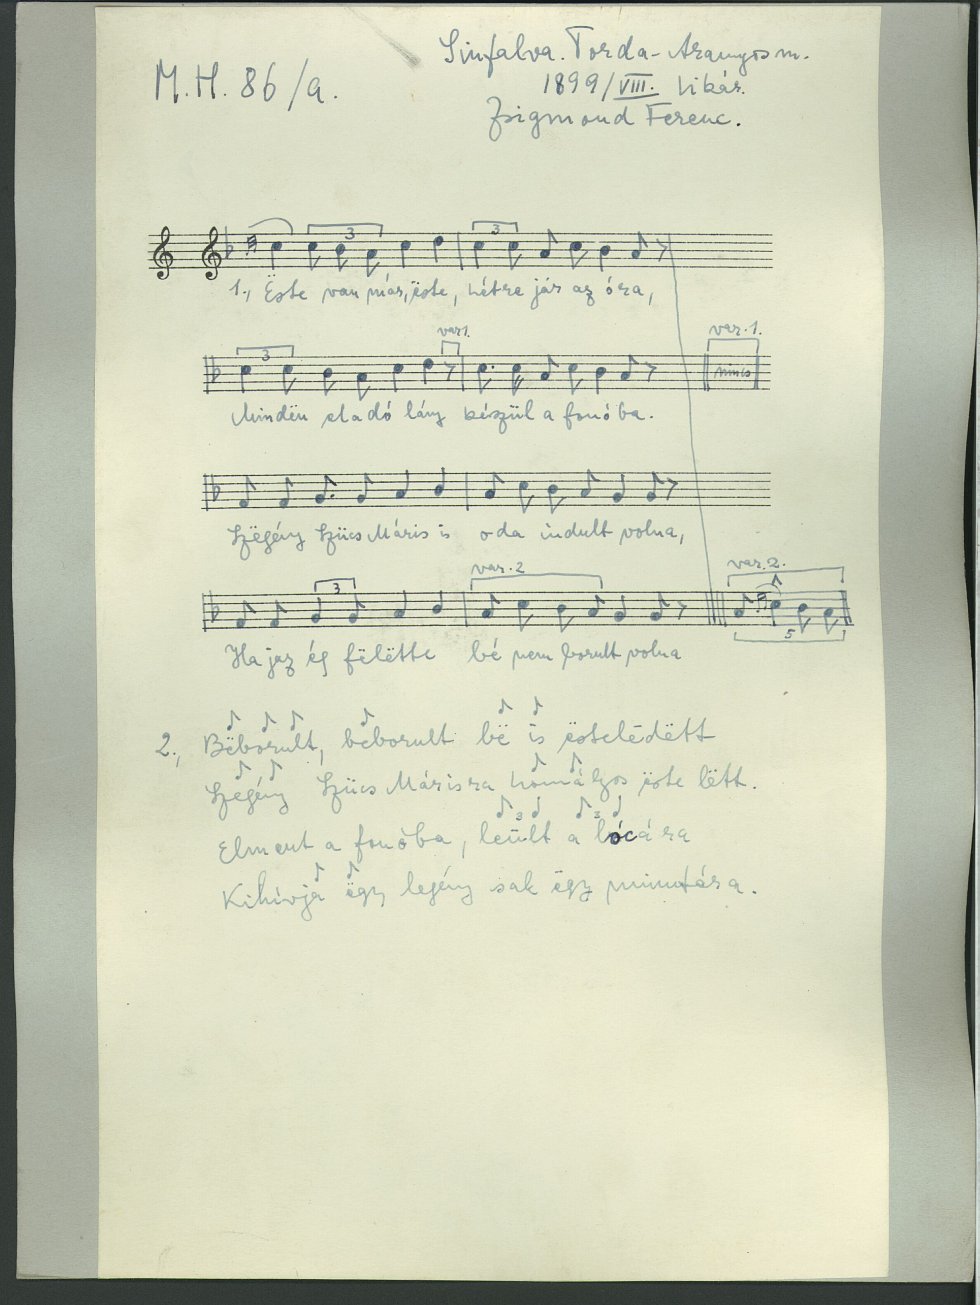 M.H. 86/a.
Sinfalva. Torda-Aranyos m.
1899/VIII. Vikár.
Zsigmond Ferenc.
3 3
1., Ëste van már, ëste, hétre jár az óra,
3 var 1. var. 1.
nincs
Mindën eladó lány készül a fonóba.
Szëgény Szűcs Máris is oda indult volna,
3 var. 2 var. 2.
5
Ha jaz ég fëlëtte bé nem borult volna
2., Bëborult, bëborult bë is ëstelëdëtt
Szëgény Szűcs Márisra homályos ëste lëtt.
3 3
Elment a fonóba, leült a lócára
Kihívja ëgy legény sak ëgy minutára.